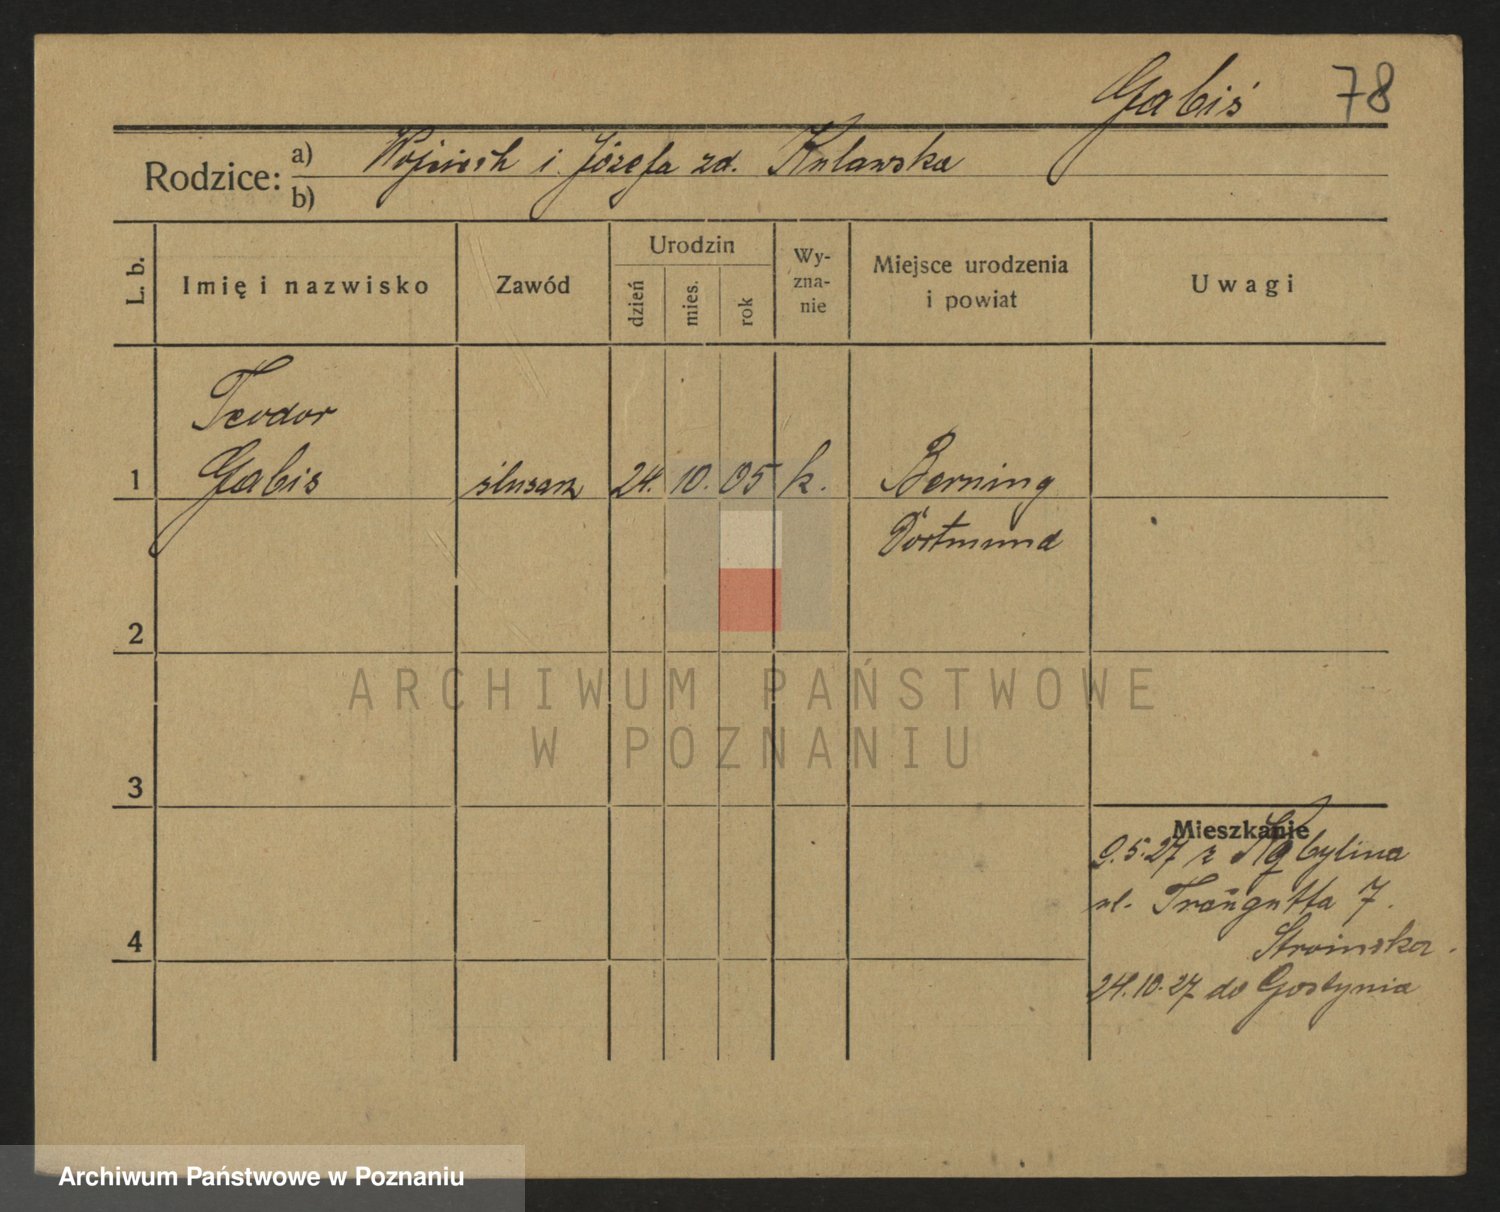 Gabiś 78
Rodzice: a) Wojciech i Józefa zd. Kulawska
b)
L. b. Imię i nazwisko Zawód Urodzin dzień mies. rok Wy-zna-nie Miejsce urodzenia i powiat Uwagi
Teodor
1 Gabis ślusarz 24. 10. 05 k. Berning
Dortmund
2
ARCHIWUM PAŃSTWOWE
W POZNANIU
3
Mieszkanie
9.5.27 z Kobylina
ul. Traugutta 7.
Stroinska.
4
24.10.27 do Gostynia
Archiwum Państwowe w Poznaniu